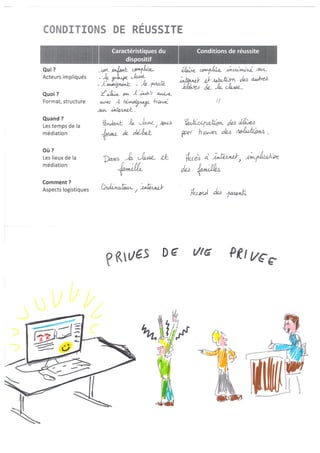 CONDITIONS DE RÉUSSITE
Caractéristiques du dispositif
Conditions de réussite
Qui ?
Acteurs impliqués
- un enfant complice
- le groupe classe
- l'enseignant - le pirate
élève complice incriminé sur
internet et réaction des autres
élèves de la classe.
Quoi ?
Format, structure
L'élève ou l'invité
avec le témoignage trouvé
sur internet.
"
Quand ?
Les temps de la médiation
Pendant la classe, sous
forme de débat
Participation des élèves
pour trouver des solutions.
Où ?
Les lieux de la médiation
Dans la classe et
famille
Accès à internet, implication
des familles
Comment ?
Aspects logistiques
Ordinateur, internet
Accord des parents
PRIVES DE VIE PRIVEE